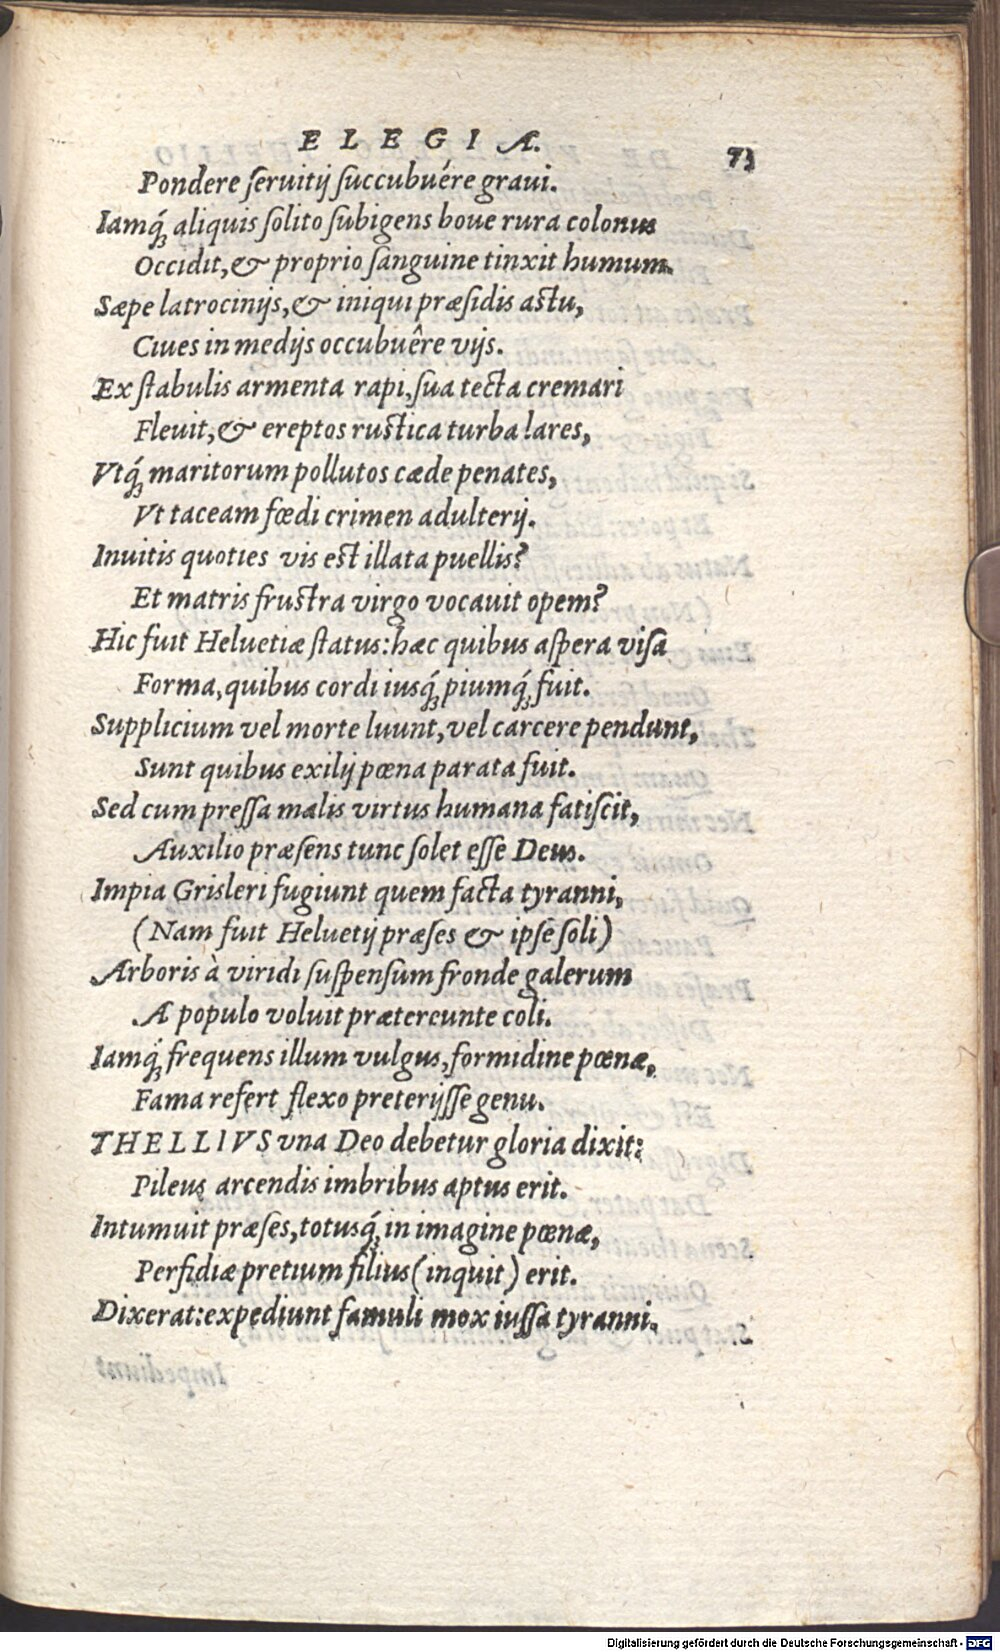 ELEGIÆ. 73
Pondere ſeruitij ſuccubuére graui.
Iamq́ꝫ aliquis ſolito ſubigens boue rura colonus
Occidit,& proprio ſanguine tinxit humum.
Sæpe latrocinijs,& iniqui præſidis aſtu,
Ciues in medijs occubuêre vijs.
Ex ſtabulis armenta rapi,ſua tecta cremari
Fleuit,& ereptos ruſtica turba lares,
Vtq́ꝫ maritorum pollutos cæde penates,
Vt taceam fœdi crimen adulterij.
Inuitis quoties vis eſt illata puellis?
Et matris fruſtra virgo vocauit opem?
Hic fuit Heluetiæ ſtatus: hæc quibus aſpera viſa
Forma, quibus cordi iusq́ꝫ piumq́ꝫ fuit.
Supplicium vel morte luunt, vel carcere pendunt,
Sunt quibus exilij pœna parata fuit.
Sed cum preſſa malis virtus humana fatiſcit,
Auxilio præſens tunc ſolet eſſe Deus.
Impia Grisleri fugiunt quem facta tyranni,
(Nam fuit Heluetij præſes & ipſe ſoli)
Arboris à viridi ſuſpenſum fronde galerum
A populo voluit prætereunte coli.
Iamq́ꝫ frequens illum vulgus, formidine pœnæ,
Fama refert flexo preterijſſe genu.
THELLIVS vna Deo debetur gloria dixit:
Pileus arcendis imbribus aptus erit.
Intumuit præſes, totusq́ꝫ in imagine pœnæ,
Perfidiæ pretium filius (inquit) erit.
Dixerat: expediunt famuli mox iuſſa tyranni.
Digitalisierung gefördert durch die Deutsche Forschungsgemeinschaft - DFG